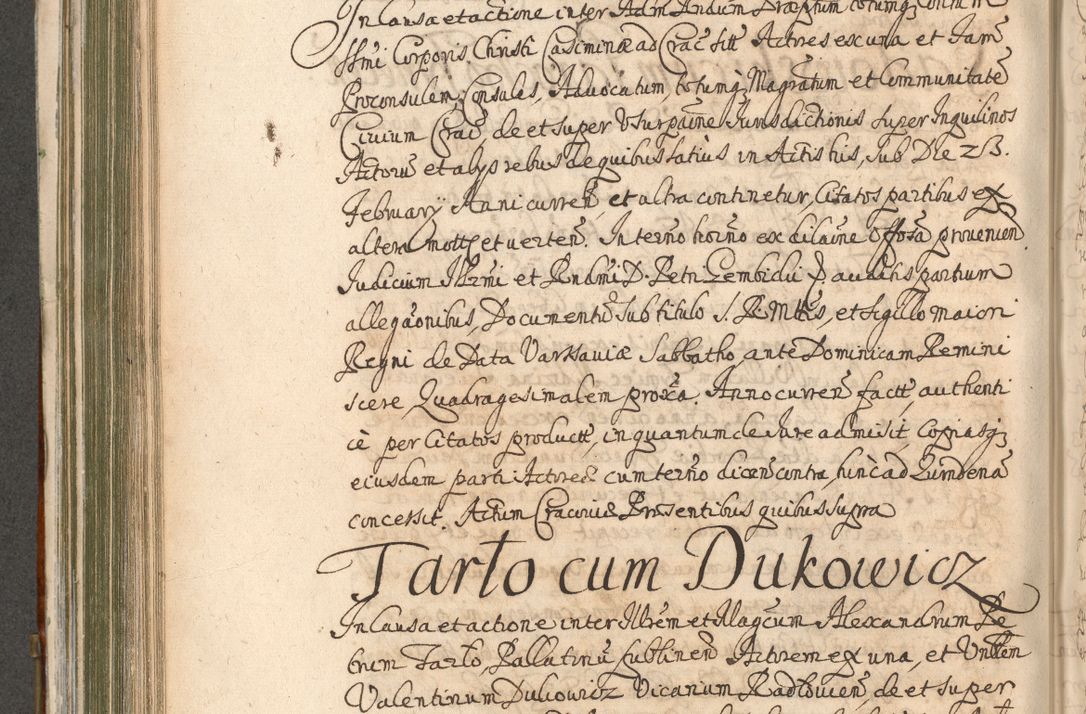 In Causa et actione inter Adm Rndum Præptum totumq Convn
SSmi Corporis Christi Casimiriæ ad Crac sitt Actores ex una et Fam
Proconsulem, Consules, Advocatum, totumq Magratum et Communitate
Civium Crac de et super Usurpaõne Jurisdictionis super Inquilinos
Actoru et alys rebus de quibus latius in Actis his, sub Die 23.
February Anni curren, et ultra continetur, Citatos partibus ex
altera mott et verten. In termo horno ex dilaõne offosa provenien
Judicium Illrmi et Rndmi D. Petri Gembicki P. auditis partium
allegaõnibus, Documentu sub titulo S. R. Mttis, et sigillo maiori
Regni de Data Varsaviæ Sabbatho ante Dominicam Remini
scere Quadragesimalem proxa. Anno curren factt, authenti
cè per Citatos productt, in quantum de Jure admisit, copiasq
eiusdem parti Actoreæ cum termo dicen contra hinc ad Quindena
concessit. Actum Cracoviæ Præsentibus quibus supra
Tarło cum Dukowicz
In Causa et actione inter Illrem et Magcum Alexandrum Pe
trum Tarło, Pallatinu Lublinen Actorem ex una, et Vnblem
Valentinum Dukowicz Vicarium Radlovien de et super